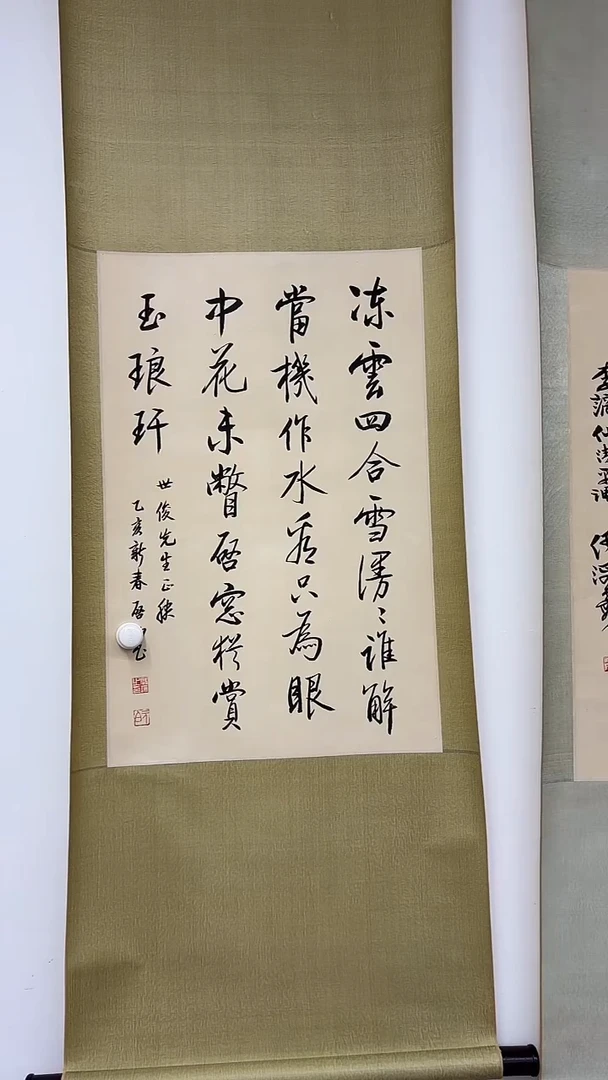 凍雲四合雪漫〻誰解
當機作水看只為眼
中花未瞥啓窓猶賞
玉琅玕
世俊先生正
乙亥新春啓